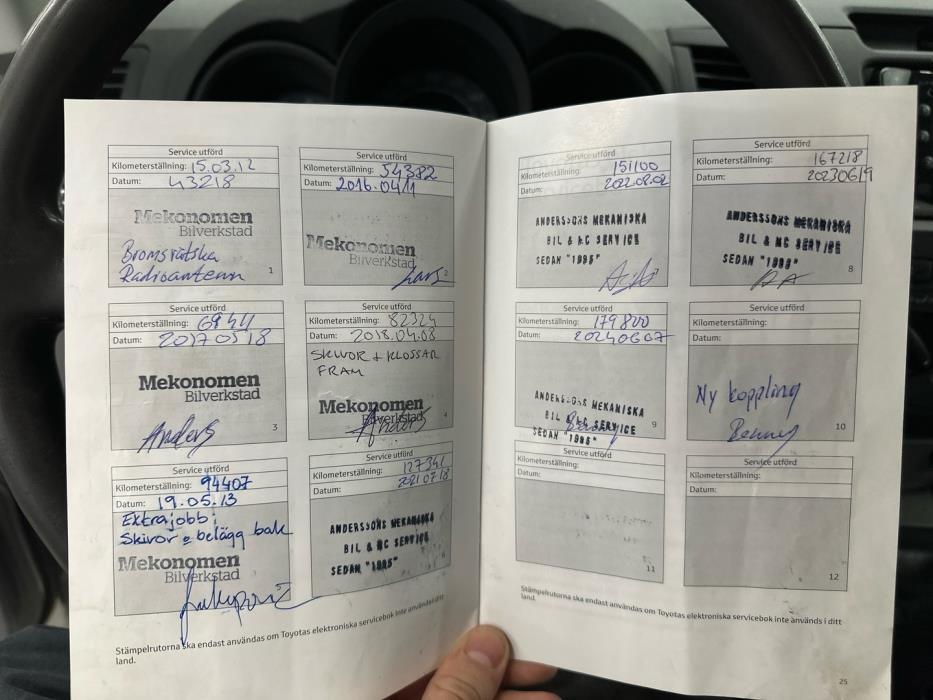 Service utförd
Kilometerställning: 15.03.12
Datum: 43218
Mekonomen
Bilverkstad
Bromsvätska
Radioantenn
1
Service utförd
Kilometerställning: 54382
Datum: 2016.04/1
Mekonomen
Bilverkstad
Lars
2
Service utförd
Kilometerställning:
Datum: 20170518
Mekonomen
Bilverkstad
Anders
3
Service utförd
Kilometerställning: 82324
Datum: 2018.04.08
SKIVOR + KLOSSAR
FRAM
Mekonomen
Bilverkstad
Anders
4
Service utförd
Kilometerställning: 94407
Datum: 19.05.13
Extrajobb:
Skivor o belägg bak
Mekonomen
Bilverkstad
5
Service utförd
Kilometerställning: 127341
Datum: 20210718
ANDERSSONS MEKANISKA
BIL & MC SERVICE
SEDAN "1995"
6
Stämpelrutorna ska endast användas om Toyotas elektroniska servicebok inte används i ditt
land.
Service utförd
Kilometerställning: 151100
Datum: 2022.02.02
ANDERSSONS MEKANISKA
BIL & MC SERVICE
SEDAN "1995"
7
Service utförd
Kilometerställning: 167218
Datum: 20230619
ANDERSSONS MEKANISKA
BIL & MC SERVICE
SEDAN "1995"
8
Service utförd
Kilometerställning: 179800
Datum: 20240607
ANDERSSONS MEKANISKA
BIL & MC SERVICE
SEDAN "1995"
Benny
9
Service utförd
Kilometerställning:
Datum:
Ny koppling
Benny
10
Service utförd
Kilometerställning:
Datum:
11
Service utförd
Kilometerställning:
Datum:
12
Stämpelrutorna ska endast användas om Toyotas elektroniska servicebok inte används i ditt
land.
25